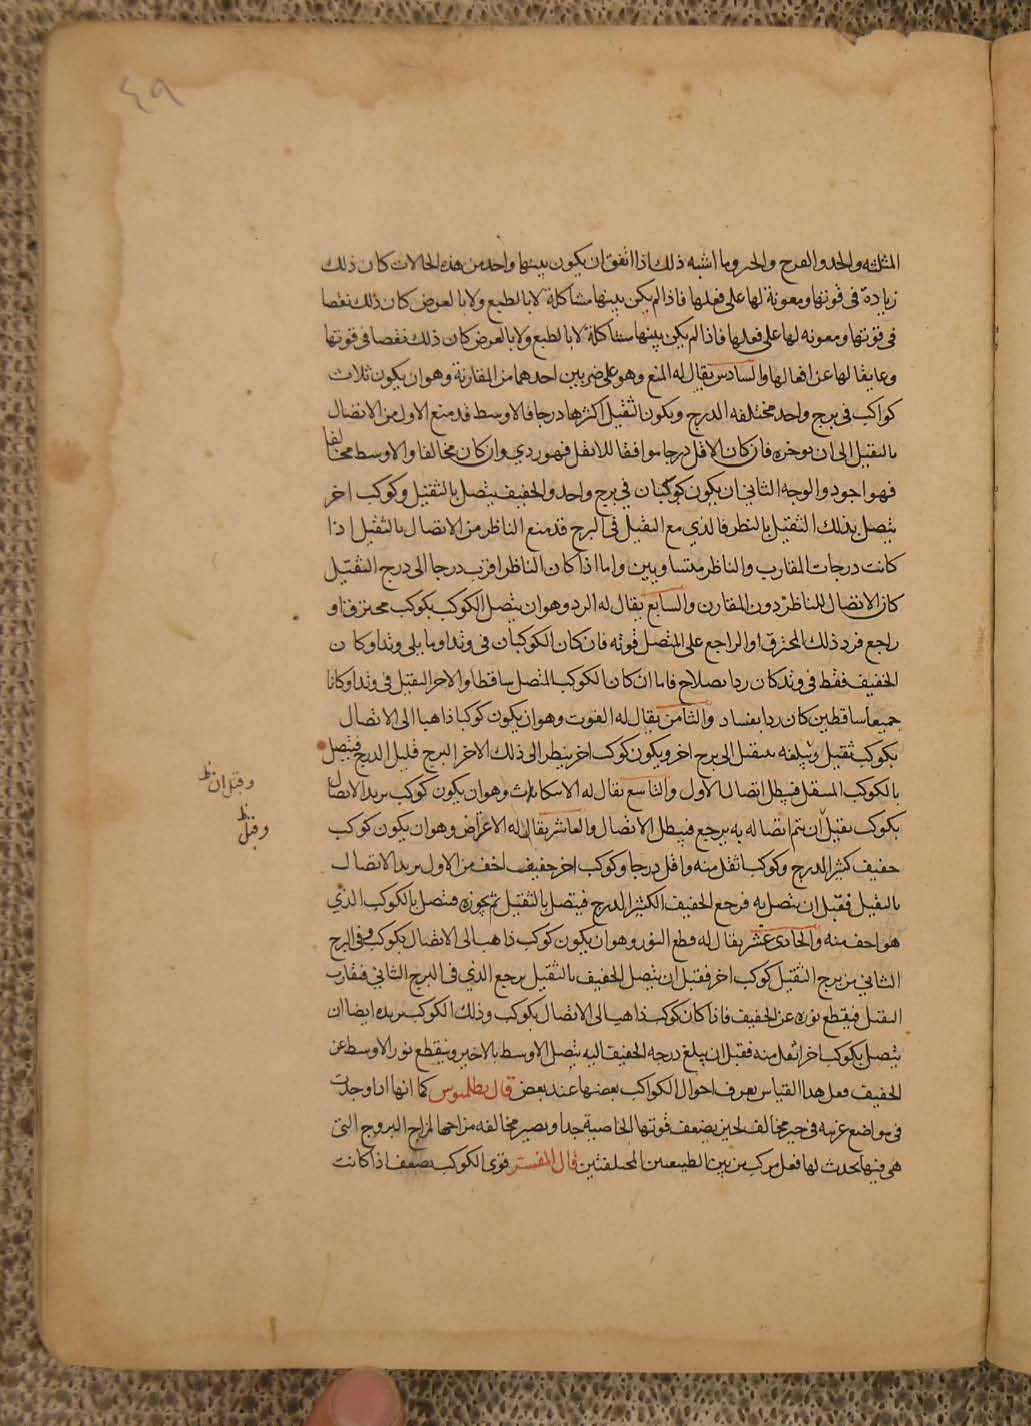 ٤٩
المثلثه والحد والفرح والحر وما اشبه ذلك اذا اتفق ان يكون بينهما واحد من هذه الحالات كان ذلك
زيادة في قوتها ومعونة لها على فعلها فاذا لم يكن بينها مشاكلة لا بالطبع ولا بالعرض كان ذلك نقصا
في قوتها ومعونه لها على فعلها فاذا لم يكن بينها مشاكلة لا بالطبع ولا بالعرض كان ذلك نقصا في قوتها
وعايقا لها عن افعالها والسادس يقال له المنع وهو على ضربين احدهما من المقارنة وهو ان يكون ثلاث
كواكب في برج واحد مختلفه الدرج ويكون الثقيل اكثرها درجا فالاوسط قد منع الاول من الاتصال
بالثقيل الى ان يجوزه فان كان الاقل درجا موافقا للاثقل فهو ردي وان كان مخالفا والاوسط مخالفا
فهو اجود والوجه الثاني ان يكون كوكبان في برج واحد والخفيف يتصل بالثقيل وكوكب اخر
يتصل بذلك الثقيل بالنظر فالذي مع الثقيل في البرج قد منع الناظر من الاتصال بالثقيل اذا
كانت درجات المقارب والناظر متساويين واما اذا كان الناظر اقرب درجا الى درج الثقيل
كان الاتصال للناظر دون المقارن والسابع يقال له الرد وهو ان يتصل الكوكب بكوكب محترق او
راجع فرد ذلك المحترق او الراجع على المتصل قوته فان كان الكوكبان في وتد او ما يلي وتد او كان
الخفيف فقط في وتد كان ردا بصلاح فاما ان كان الكوكب المتصل ساقطا والاخر الثقيل في وتد او كانا
جميعا ساقطين كان ردا بفساد والثامن يقال له الفوت وهو ان يكون كوكبا ذاهبا الى الاتصال
بكوكب ثقيل ويبلغه ينتقل الى برج اخر ويكون كوكب اخر ينظر الى ذلك الاخر البرج قليل الدرج فيتصل
بالكوكب المنتقل فيبطل اتصال الاول والتاسع يقال له الاسكات وهو ان يكون كوكب يريد الاتصال
بكوكب ثقيل ان يتم اتصاله به يرجع فيبطل الاتصال والعاشر يقال له الاعراض وهو ان يكون كوكب
خفيف كثير الدرج وكوكب اثقل منه واقل درجا وكوكب اخر خفيف اخف من الاول يريد الاتصال
بالثقيل فقبل ان يتصل به فرجع الخفيف الكثير الدرج فيتصل بالثقيل ثم يجوزه فيتصل بالكوكب الذي
هو اخف منه والحادي عشر يقال له قطع النور وهو ان يكون كوكب ذاهب الى الاتصال بكوكب وفي البرج
الثاني من برج الثقيل كوكب اخر فقبل ان يتصل الخفيف بالثقيل يرجع الذي في البرج الثاني فيقارب
الثقيل فيقطع نوره عن الخفيف فاذا كان كوكب ذاهب الى الاتصال بكوكب وذلك الكوكب يريد ايضا ان
يتصل بكوكب اخر اثقل منه فقبل ان يبلغ درجه الخفيف اليه يتصل الاوسط بالاخير ويقطع نور الاوسط عن
الخفيف فعل هذا القياس يعرف احوال الكواكب بعضها عند بعض قال بطلميوس كما انها اذا وجدت
في مواضع غريبه في حيز مخالف لحيز يضعف قوتها الخاصية جدا ويصير مخالفه مزاجها لمزاج البروج التي
هي فيها يحدث لها فعل مركب من بين الطبيعتين المختلفتين قال المفسر قوى الكوكب يضعف اذا كانت
وقبل ان ظ
وقبل ظ